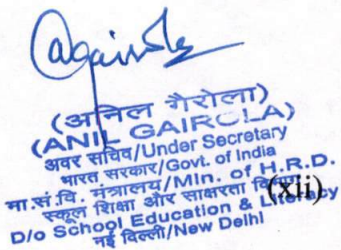 (अनिल गैरोला)
(ANIL GAIROLA)
अवर सचिव/Under Secretary
भारत सरकार/Govt. of India
मा.सं.वि. मंत्रालय/Min. of H.R.D.
स्कूल शिक्षा और साक्षरता
(xii)
D/o School Education & Literacy
नई दिल्ली/New Delhi